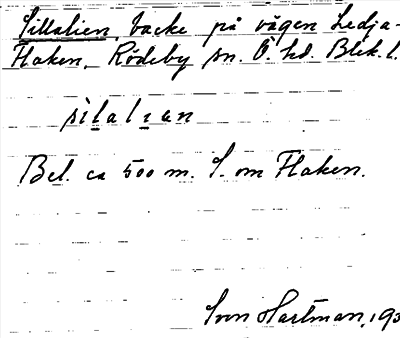 Sillalien, backe på vägen Ledja-
Flaken, Rödeby sn. Ö. hd. Blek. l.
silalian
Bel. ca 500 m. S. om Flaken.
Sven Hartman, 193